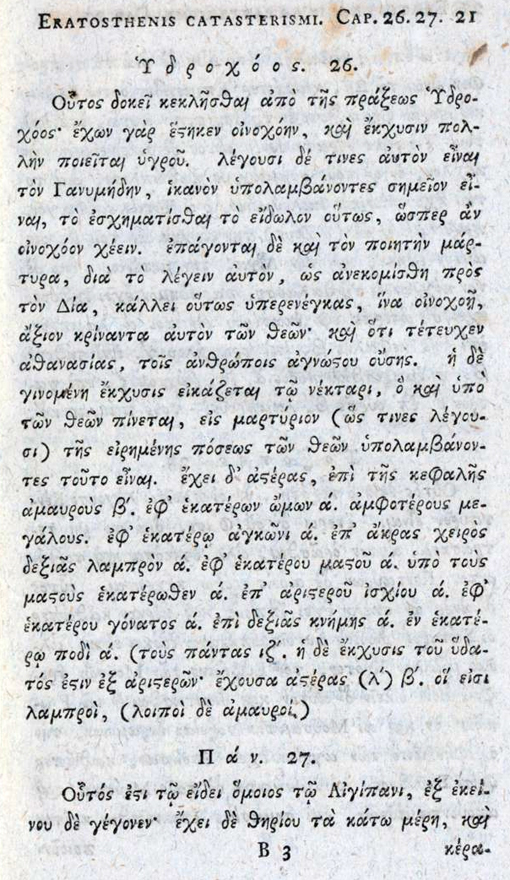 ERATOSTHENIS CATASTERISMI. CAP. 26. 27. 21
Ὑδροχόος. 26.
Οὗτος δοκεῖ κεκλῆσθαι ἀπὸ τῆς πράξεως Ὑδρο-
χόος· ἔχων γὰρ ἕστηκεν οἰνοχόην, καὶ ἔκχυσιν πολ-
λὴν ποιεῖται ὑγροῦ. λέγουσι δέ τινες αὐτὸν εἶναι
τὸν Γανυμήδην, ἱκανὸν ὑπολαμβάνοντες σημεῖον εἶ-
ναι, τὸ ἐσχηματίσθαι τὸ εἴδωλον οὕτως, ὥσπερ ἂν
οἰνοχόον χέειν. ἐπάγονται δὲ καὶ τὸν ποιητὴν μάρ-
τυρα, διὰ τὸ λέγειν αὐτὸν, ὡς ἀνεκομίσθη πρὸς
τὸν Δία, κάλλει οὕτως ὑπερενέγκας, ἵνα οἰνοχοῇ,
ἄξιον κρίναντα αὐτὸν τῶν θεῶν· καὶ ὅτι τέτευχεν
ἀθανασίας, τοῖς ἀνθρώποις ἀγνώστου οὔσης. ἡ δὲ
γινομένη ἔκχυσις εἰκάζεται τῷ νέκταρι, ὃ καὶ ὑπὸ
τῶν θεῶν πίνεται, εἰς μαρτύριον (ὥς τινες λέγου-
σι) τῆς εἰρημένης πόσεως τῶν θεῶν ὑπολαμβάνον-
τες τοῦτο εἶναι. ἔχει δ' ἀστέρας, ἐπὶ τῆς κεφαλῆς
ἀμαυροὺς β'. ἐφ' ἑκατέρων ὤμων ά. ἀμφοτέρους με-
γάλους. ἐφ' ἑκατέρῳ ἀγκῶνι ά. ἐπ' ἄκρας χειρὸς
δεξιᾶς λαμπρὸν ά. ἐφ' ἑκατέρου μαστοῦ ά. ὑπὸ τοὺς
μαστοὺς ἑκατέρωθεν ά. ἐπ' ἀριστεροῦ ἰσχίου ά. ἐφ'
ἑκατέρου γόνατος ά. ἐπὶ δεξιᾶς κνήμης ά. ἐν ἑκατέ-
ρῳ ποδὶ ά. (τοὺς πάντας ιζ'. ἡ δὲ ἔκχυσις τοῦ ὕδα-
τός ἐστιν ἐξ ἀριστερῶν· ἔχουσα ἀστέρας (λ') β'. οἵ εἰσι
λαμπροὶ, (λοιποὶ δὲ ἀμαυροί.)
Πάν. 27.
Οὗτός ἐστι τῷ εἴδει ὅμοιος τῷ Αἰγίπανι, ἐξ ἐκεί-
νου δὲ γέγονεν· ἔχει δὲ θηρίου τὰ κάτω μέρη, καὶ
B 3 κέρα-